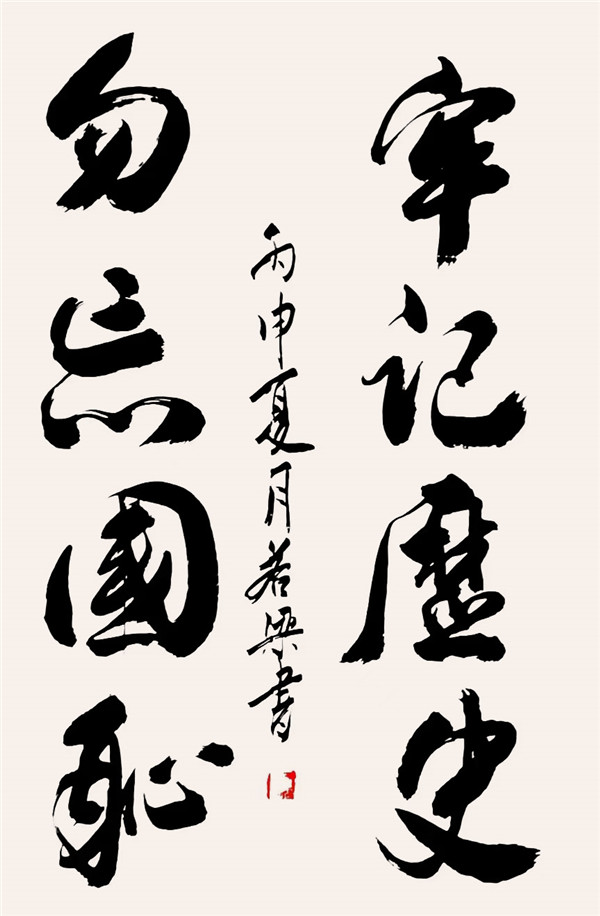 牢记歷史
勿忘國恥
丙申夏月若梁書